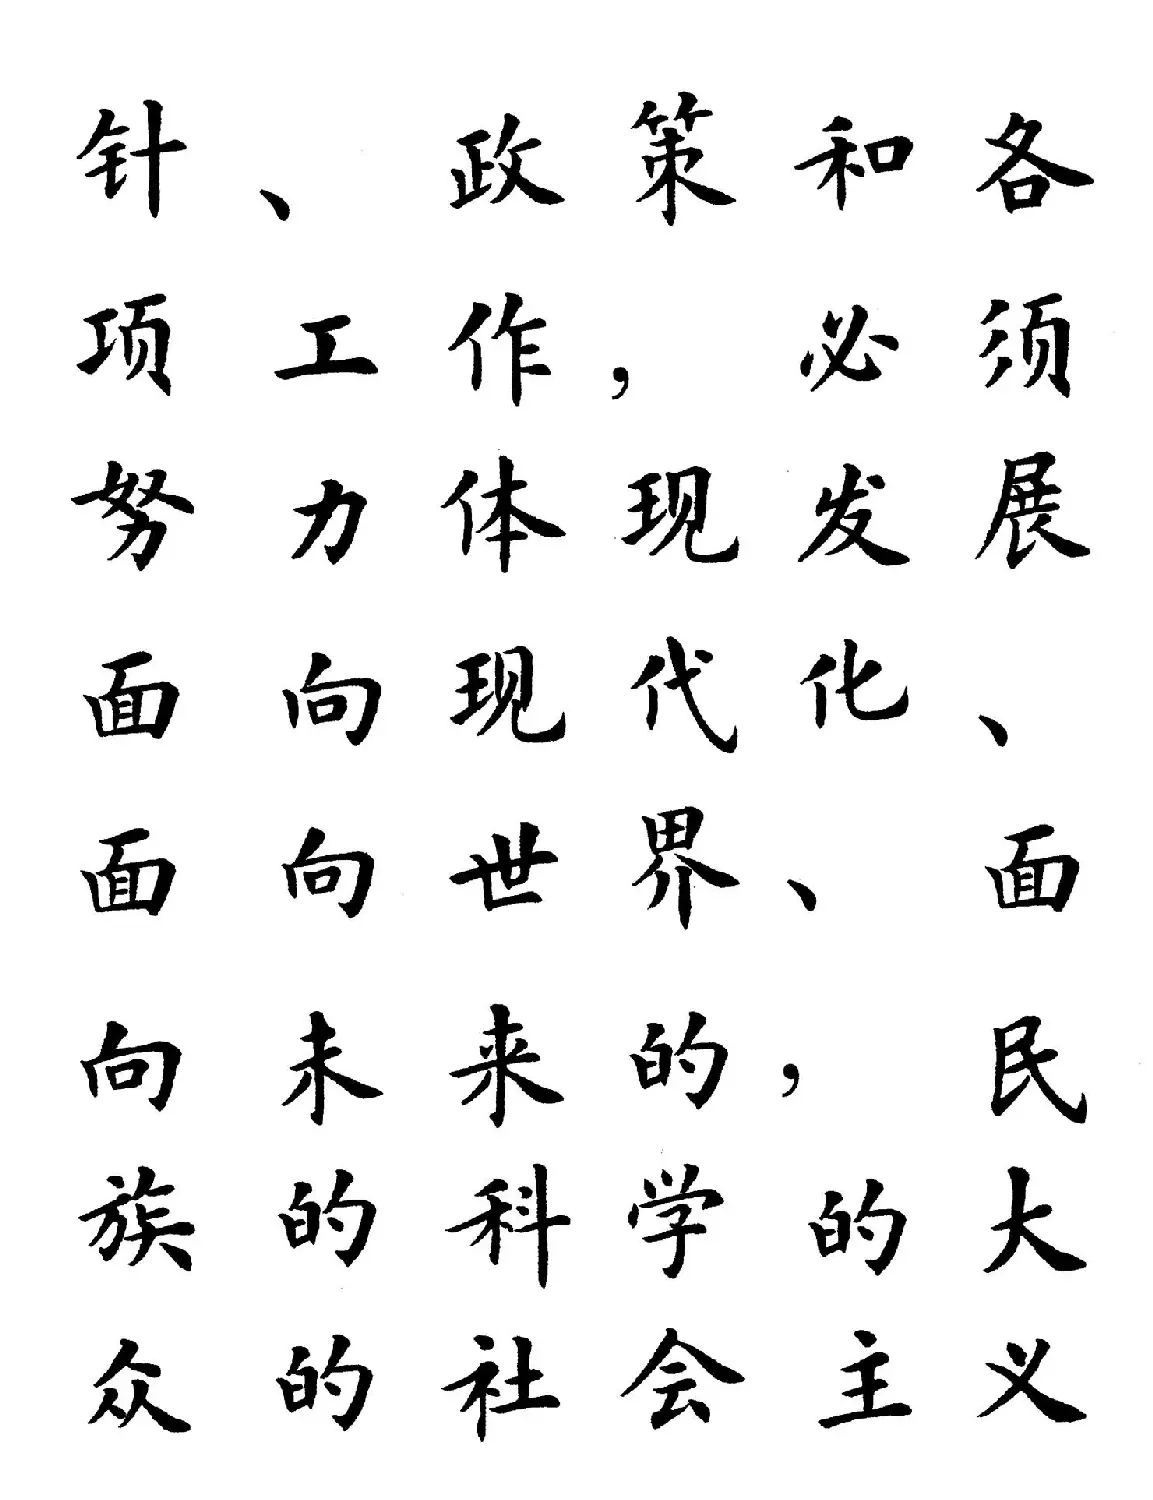 针、政策和各
项工作，必须
努力体现发展
面向现代化、
面向世界、面
向未来的，民
族的科学的大
众的社会主义